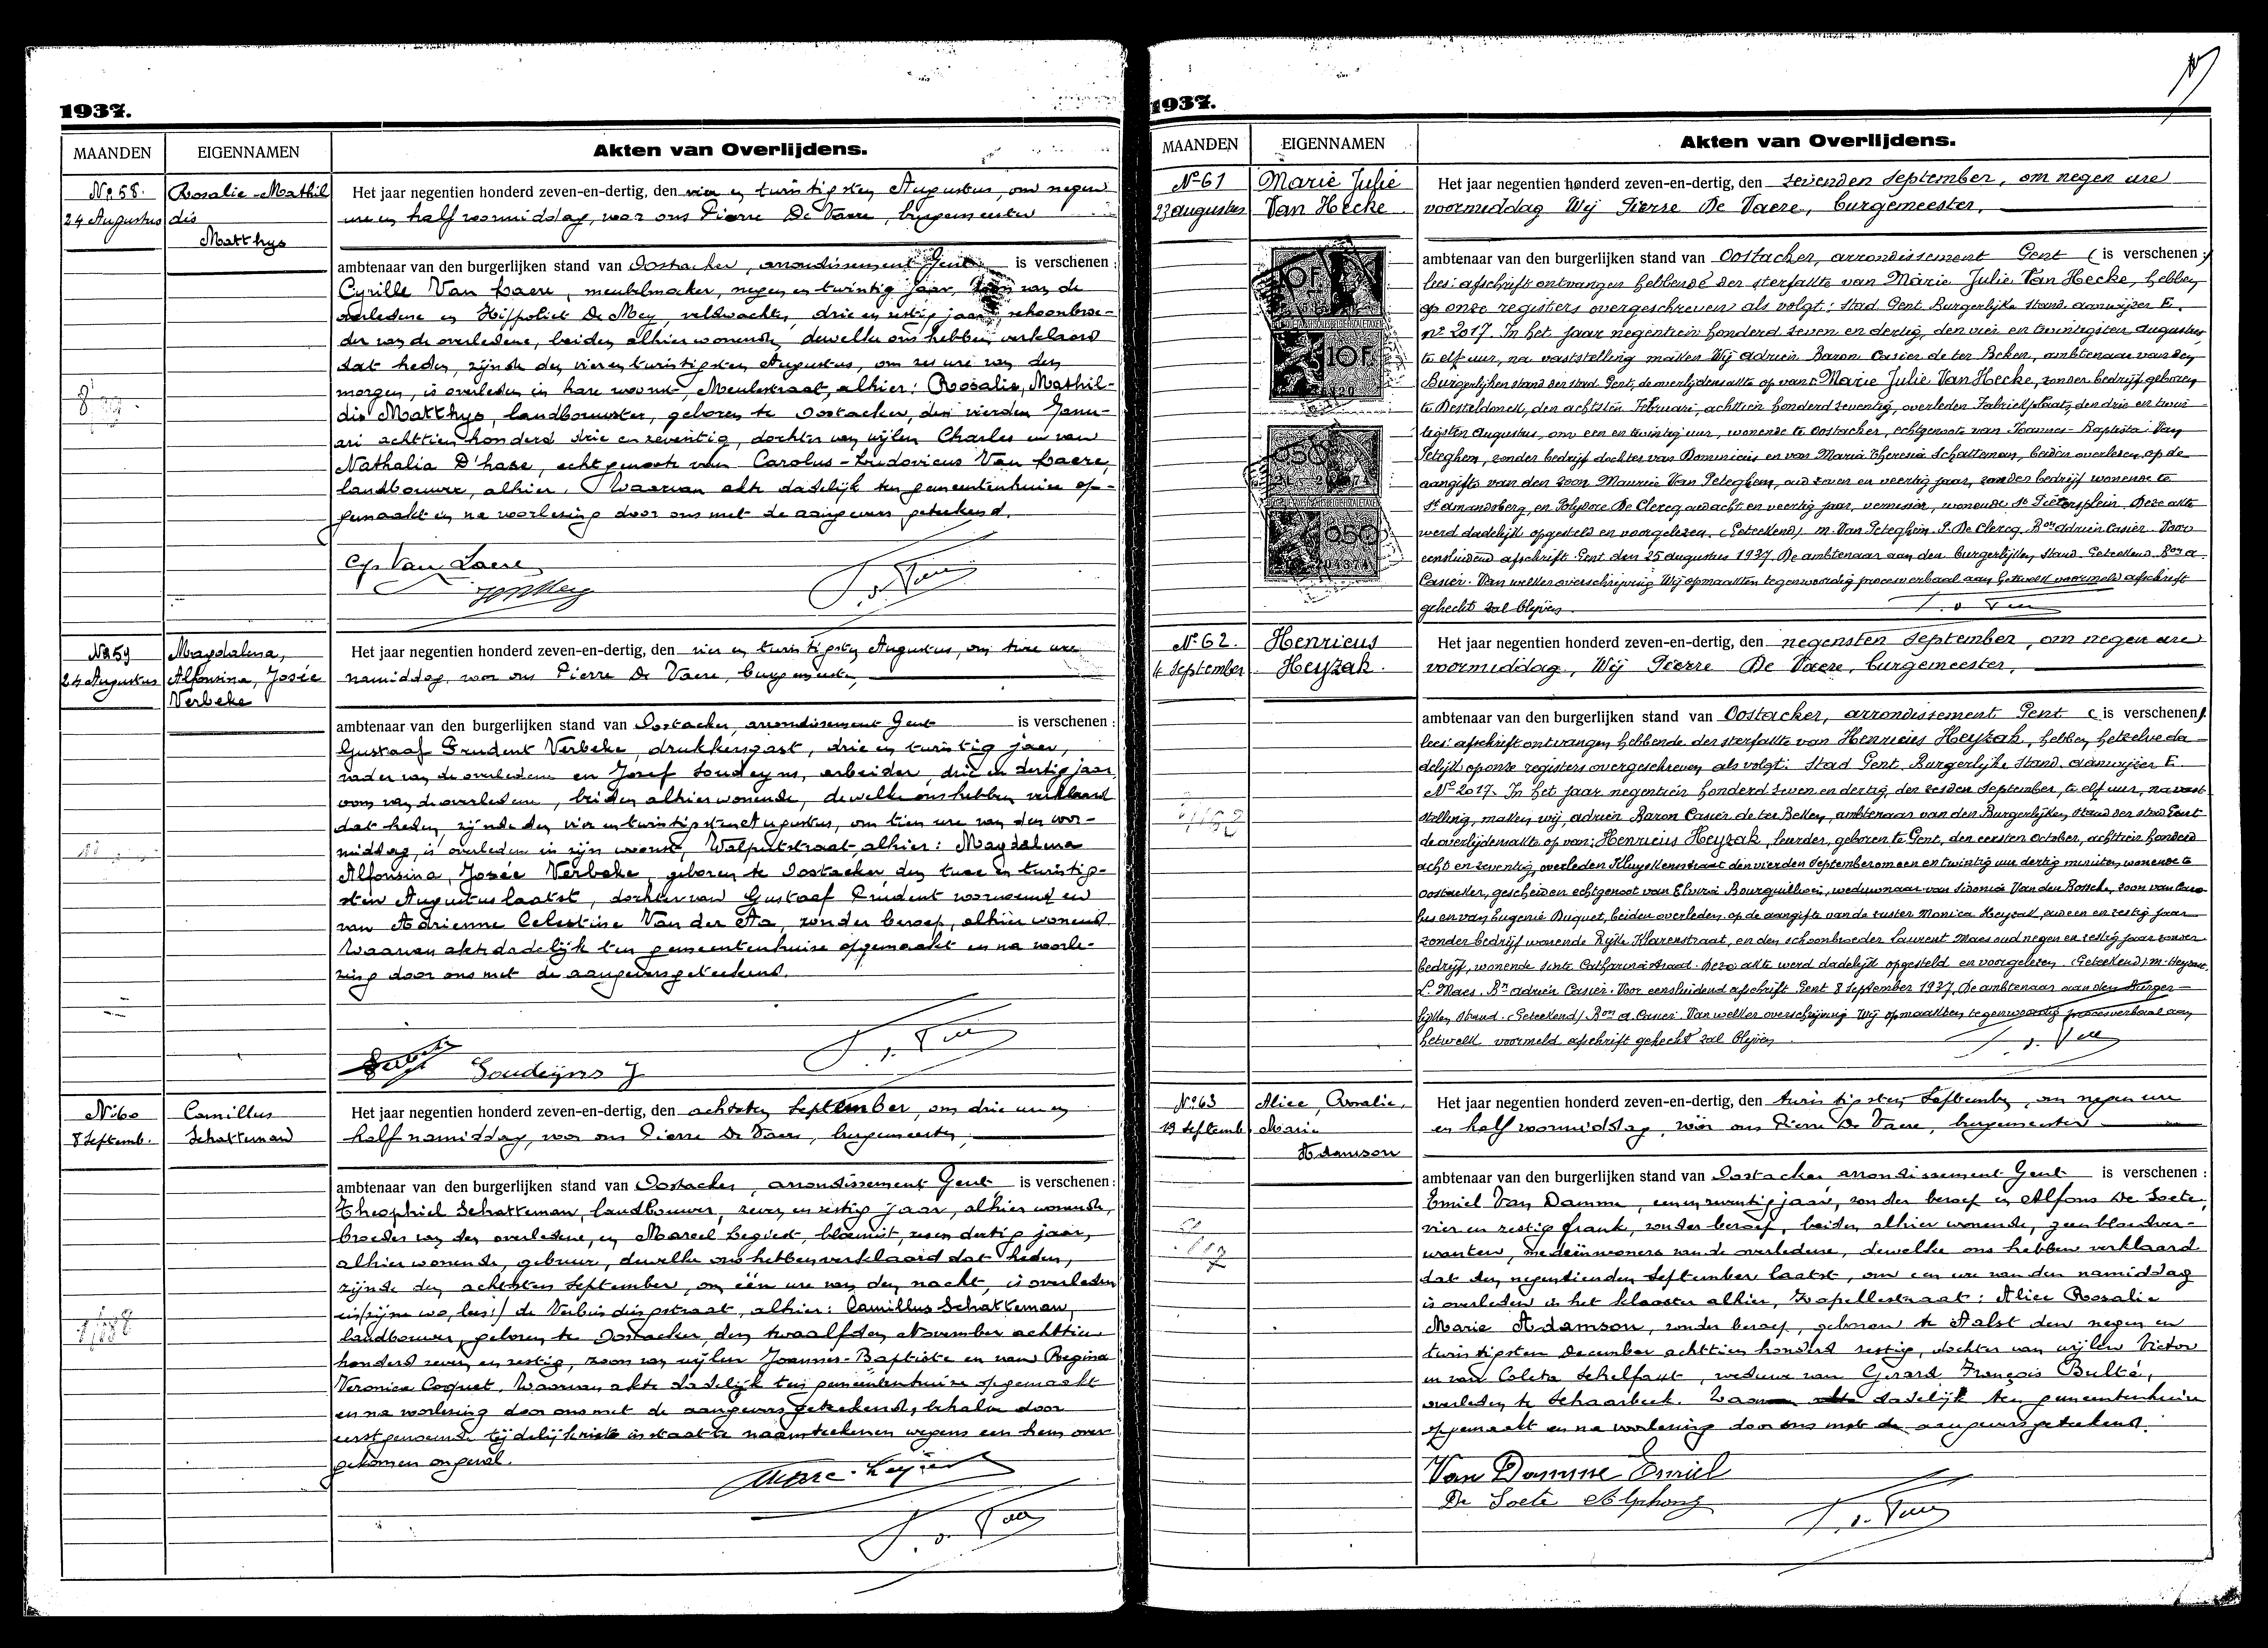 1937.
MAANDEN EIGENNAMEN Akten van Overlijdens.
No 58. Rosalie-Mathil
24 Augustus dis
Matthys
Het jaar negentien honderd zeven-en-dertig, den vier en twintigsten Augustus, om negen
ure en half voormiddag, voor ons Pierre De Vaere, burgemeester
ambtenaar van den burgerlijken stand van Oostacker, arrondissement Gent is verschenen:
Cyrille Van Laere, meubelmaker, negen en twintig jaar, zoon van de
overledene en Hippoliet De Mey, veldwachter, drie en zestig jaar, schoonbroe-
der van de overledene, beiden alhier wonende, dewelke ons hebben verklaard
dat heden, zijnde den vier en twintigsten Augustus, om zes ure van den
morgen, is overleden in hare woonst, Meulestraat, alhier: Rosalie, Mathil-
dis Matthys, landbouwster, geboren te Oostacker, den vierden Janu-
ari achttien honderd drie en zeventig, dochter van wijlen Charles en van
Nathalia D'hase, echtgenoote van Carolus-Ludovicus Van Laere,
landbouwer, alhier. Waarvan akte dadelijk ten gemeentenhuize op-
gemaakt en na voorlezing door ons met de aangevers geteekend.
Cyr Van Laere
No 59 Magdalena,
24 Augustus Alfonsina, Josée
Verbeke
Het jaar negentien honderd zeven-en-dertig, den vier en twintigsten Augustus om twee ure
namiddag, voor ons Pierre De Vaere, burgemeester,
ambtenaar van den burgerlijken stand van Oostacker, arrondissement Gent is verschenen:
Gustaaf Prudent Verbeke, drukkersgast, drie en twintig jaar,
vader van de overledene en Josef Soudeyns, arbeider, drie en dertig jaar,
oom van de overledene, beiden alhier wonende, dewelke ons hebben verklaard
dat heden, zijnde den vier en twintigsten Augustus, om tien ure van den voor-
middag, is overleden in zijn woonst, Walputstraat alhier: Magdalena
Alfonsina, Josée Verbeke, geboren te Oostacker den twee en twintig-
sten Augustus laatst, dochter van Gustaaf Prudent voornoemd en
van Adrienne Celestine Van der Aa, zonder beroep, alhier wonend.
Waarvan akte dadelijk ten gemeentenhuize opgemaakt en na voorle-
zing door ons met de aangevers geteekend.
Soudeijns J
No 60 Camillus
8 Septemb. Schatteman
Het jaar negentien honderd zeven-en-dertig, den achtsten September, om drie ure en
half namiddag, voor ons Pierre De Vaere, burgemeester,
ambtenaar van den burgerlijken stand van Oostacker, arrondissement Gent is verschenen:
Theophiel Schatteman, landbouwer, zeven en zestig jaar, alhier wonende,
broeder van den overledene, en Marcel Legiest, bloemist, zes en dertig jaar,
alhier wonende, gebuur, dewelke ons hebben verklaard dat heden,
zijnde den achtsten September, om één ure van den nacht, is overleden
in (zijne wo, lees:) de Verbindingstraat, alhier: Camillus Schatteman,
landbouwer, geboren te Oostacker, den twaalfden November achttien
honderd zeven en zestig, zoon van wijlen Joannes-Baptiste en van Regina
Veronica Coquet. Waarvan akte dadelijk ten gemeentenhuize opgemaakt
en na voorlezing door ons met de aangevers geteekend, behalve door
eerstgenoemde tijdelijk niet in staat te naamteekenen wegens een hem over-
gekomen ongeval.
1937.
MAANDEN EIGENNAMEN Akten van Overlijdens.
No 61 Marie Julie
23 augustus Van Hecke
Het jaar negentien honderd zeven-en-dertig, den zevenden September, om negen ure
voormiddag Wij Pierre De Vaere, burgemeester,
ambtenaar van den burgerlijken stand van Oostacker, arrondissement Gent (is verschenen:)
lees: afschrift ontvangen hebbende der sterfakte van Marie Julie Van Hecke, hebben
op onze registers overgeschreven als volgt: Stad Gent Burgerlijke Stand. aanwijzer E.
no 2017. In het jaar negentien honderd zeven en dertig, den vier en twintigsten augustus
te elf uur, na vaststelling maken Wij Adrien Baron Casier de ter Beken, ambtenaar van den
Burgerlijken stand der stad Gent, de overlijdensakte op van: Marie Julie Van Hecke, zonder bedrijf geboren
te Desteldonck, den achtsten Februari, achttien honderd zeventig, overleden Fabriekplaats, den drie en twin
tigsten augustus, om een en twintig uur, wonende te Oostacker, echtgenoote van Joannes-Baptista Van
Peteghem, zonder bedrijf dochter van Dominicus en van Maria Theresia Schatteman, beiden overleden, op de
aangifte van den zoon Maurice Van Peteghem, oud zeven en veertig jaar, zonder bedrijf wonende te
St Amandsberg, en Polydore De Clercq oud acht en veertig jaar, vernisser, wonende St Pietersplein. Deze akte
werd dadelijk opgesteld en voorgelezen. (Geteekend) M. Van Peteghem. P. De Clercq. Bon Adrien Casier. Voor
eensluidend afschrift. Gent den 25 augustus 1937. De ambtenaar aan den burgerlijken stand. Geteekend Bon A.
Casier. Van welker overschrijving Wij opmaakten tegenwoordig procesverbaal aan hetwelk voormeld afschrift
gehecht zal blijven.
10F
No 62. Henricus
4 September Heyzak.
Het jaar negentien honderd zeven-en-dertig, den negensten September, om negen ure
voormiddag, Wij Pierre De Vaere, burgemeester,
ambtenaar van den burgerlijken stand van Oostacker, arrondissement Gent (is verschenen).
lees: afschrift ontvangen hebbende der sterfakte van Henricus Heyzak, hebben hetzelve da
delijk op onze registers overgeschreven als volgt: Stad Gent. Burgerlijke Stand. aanwijzer E.
No 2017. In het jaar negentien honderd zeven en dertig, den zesden September, te elf uur, na vast
stelling, maken wij Adrien Baron Casier de ter Beken, ambtenaar van den Burgerlijken Stand der stad Gent
de overlijdensakte op van: Henricus Heyzak, geboren te Gent, den eersten October, achttien honderd
acht en zeventig, overleden Kluyskensstraat den vierden September om een en twintig uur dertig minuten, wonende te
Oostacker, gescheiden echtgenoot van Elvira Bourguillioen, weduwnaar van Sidonia Van den Bossche, zoon van Caro
lus en van Eugenie Duquet, beiden overleden, op de aangifte van de zuster Monica Heyzak, oud een en zestig jaar
zonder bedrijf wonende Rijke Klarenstraat, en den schoonbroeder Laurent Maes oud negen en zestig jaar zonder
bedrijf, wonende Sinte Catharinastraat. Deze akte werd dadelijk opgesteld en voorgelezen. (Geteekend) M. Heyzak.
L. Maes. Bn Adrien Casier. Voor eensluidend afschrift Gent 8 September 1937. De ambtenaar van den Burger-
lijken Stand. (Geteekend) Bon A. Casier. Van welker overschrijving Wij opmaakten tegenwoordig procesverbaal aan
hetwelk voormeld afschrift gehecht zal blijven
No 63 Alice, Rosalie,
19 Septemb Marie
Adamson
Het jaar negentien honderd zeven-en-dertig, den twintigsten September, om negen ure
en half voormiddag, vóór ons Pierre De Vaere, burgemeester
ambtenaar van den burgerlijken stand van Oostacker arrondissement Gent is verschenen:
Emiel Van Damme, een en zeventig jaar, zonder beroep en Alfons De Soete,
vier en zestig frank, zonder beroep, beiden alhier wonende, geen bloedver-
wanten, medeinwoners van de overledene, dewelke ons hebben verklaard
dat den negentienden September laatst, om een ure van den namiddag
is overleden in het klooster alhier, Kapellestraat: Alice Rosalie
Marie Adamson, zonder beroep, geboren te Aalst den negen en
twintigsten December achttien honderd zestig, dochter van wijlen Victor
en van Coleta Schelfaut, weduwe van Gerard François Bulté,
overleden te Schaarbeek. Waarvan akte dadelijk ten gemeentenhuize
opgemaakt en na voorlezing door ons met de aangevers geteekend.
Van Damme Emiel
De Soete Alphons